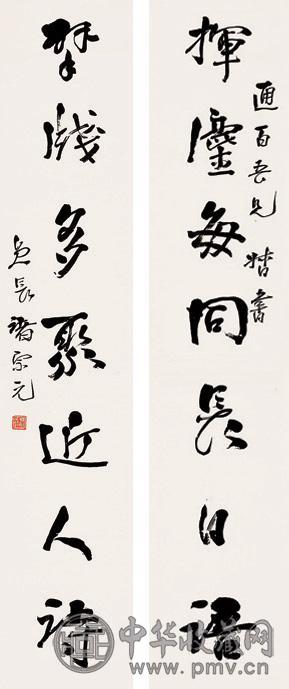 揮麈每同長日語
通百吾兄 書
擘牋多聚近人詩
貞長諸宗元
中华收藏网
www.pmv.cn